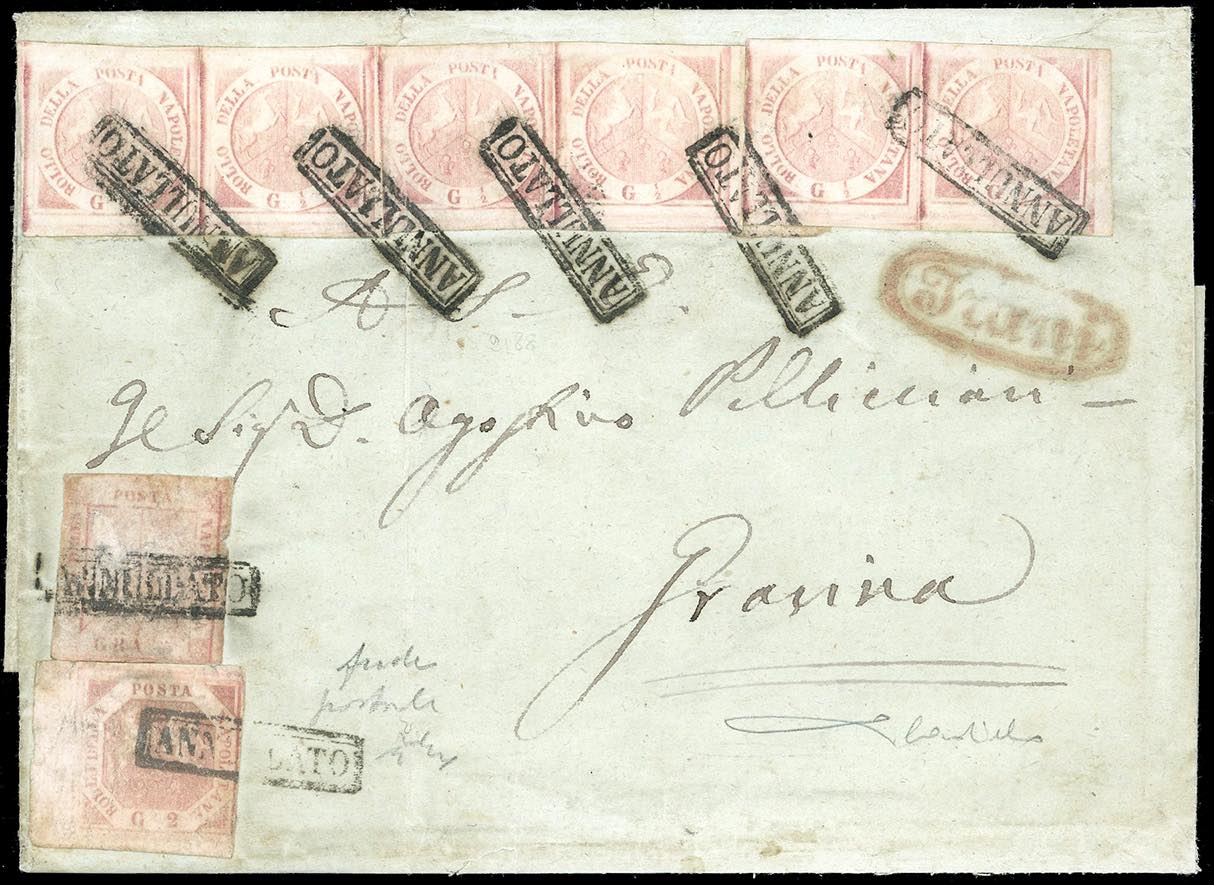 ROLLO DELLA POSTA NAPOLETANA G ½
ROLLO DELLA POSTA NAPOLETANA G ½
ROLLO DELLA POSTA NAPOLETANA G ½
ROLLO DELLA POSTA NAPOLETANA G ½
ROLLO DELLA POSTA NAPOLETANA G ½
ROLLO DELLA POSTA NAPOLETANA G ½
ANNULLATO
ANNULLATO
ANNULLATO
ANNULLATO
ANNULLATO
Trani
A S.
Al Sigr D. Agostino Pellicciari
Gravina
POSTA
ANNULLATO
GRA
frode
postale
POSTA
BOLLO DELLA NAPOLETANA
G 2
ANNULLATO